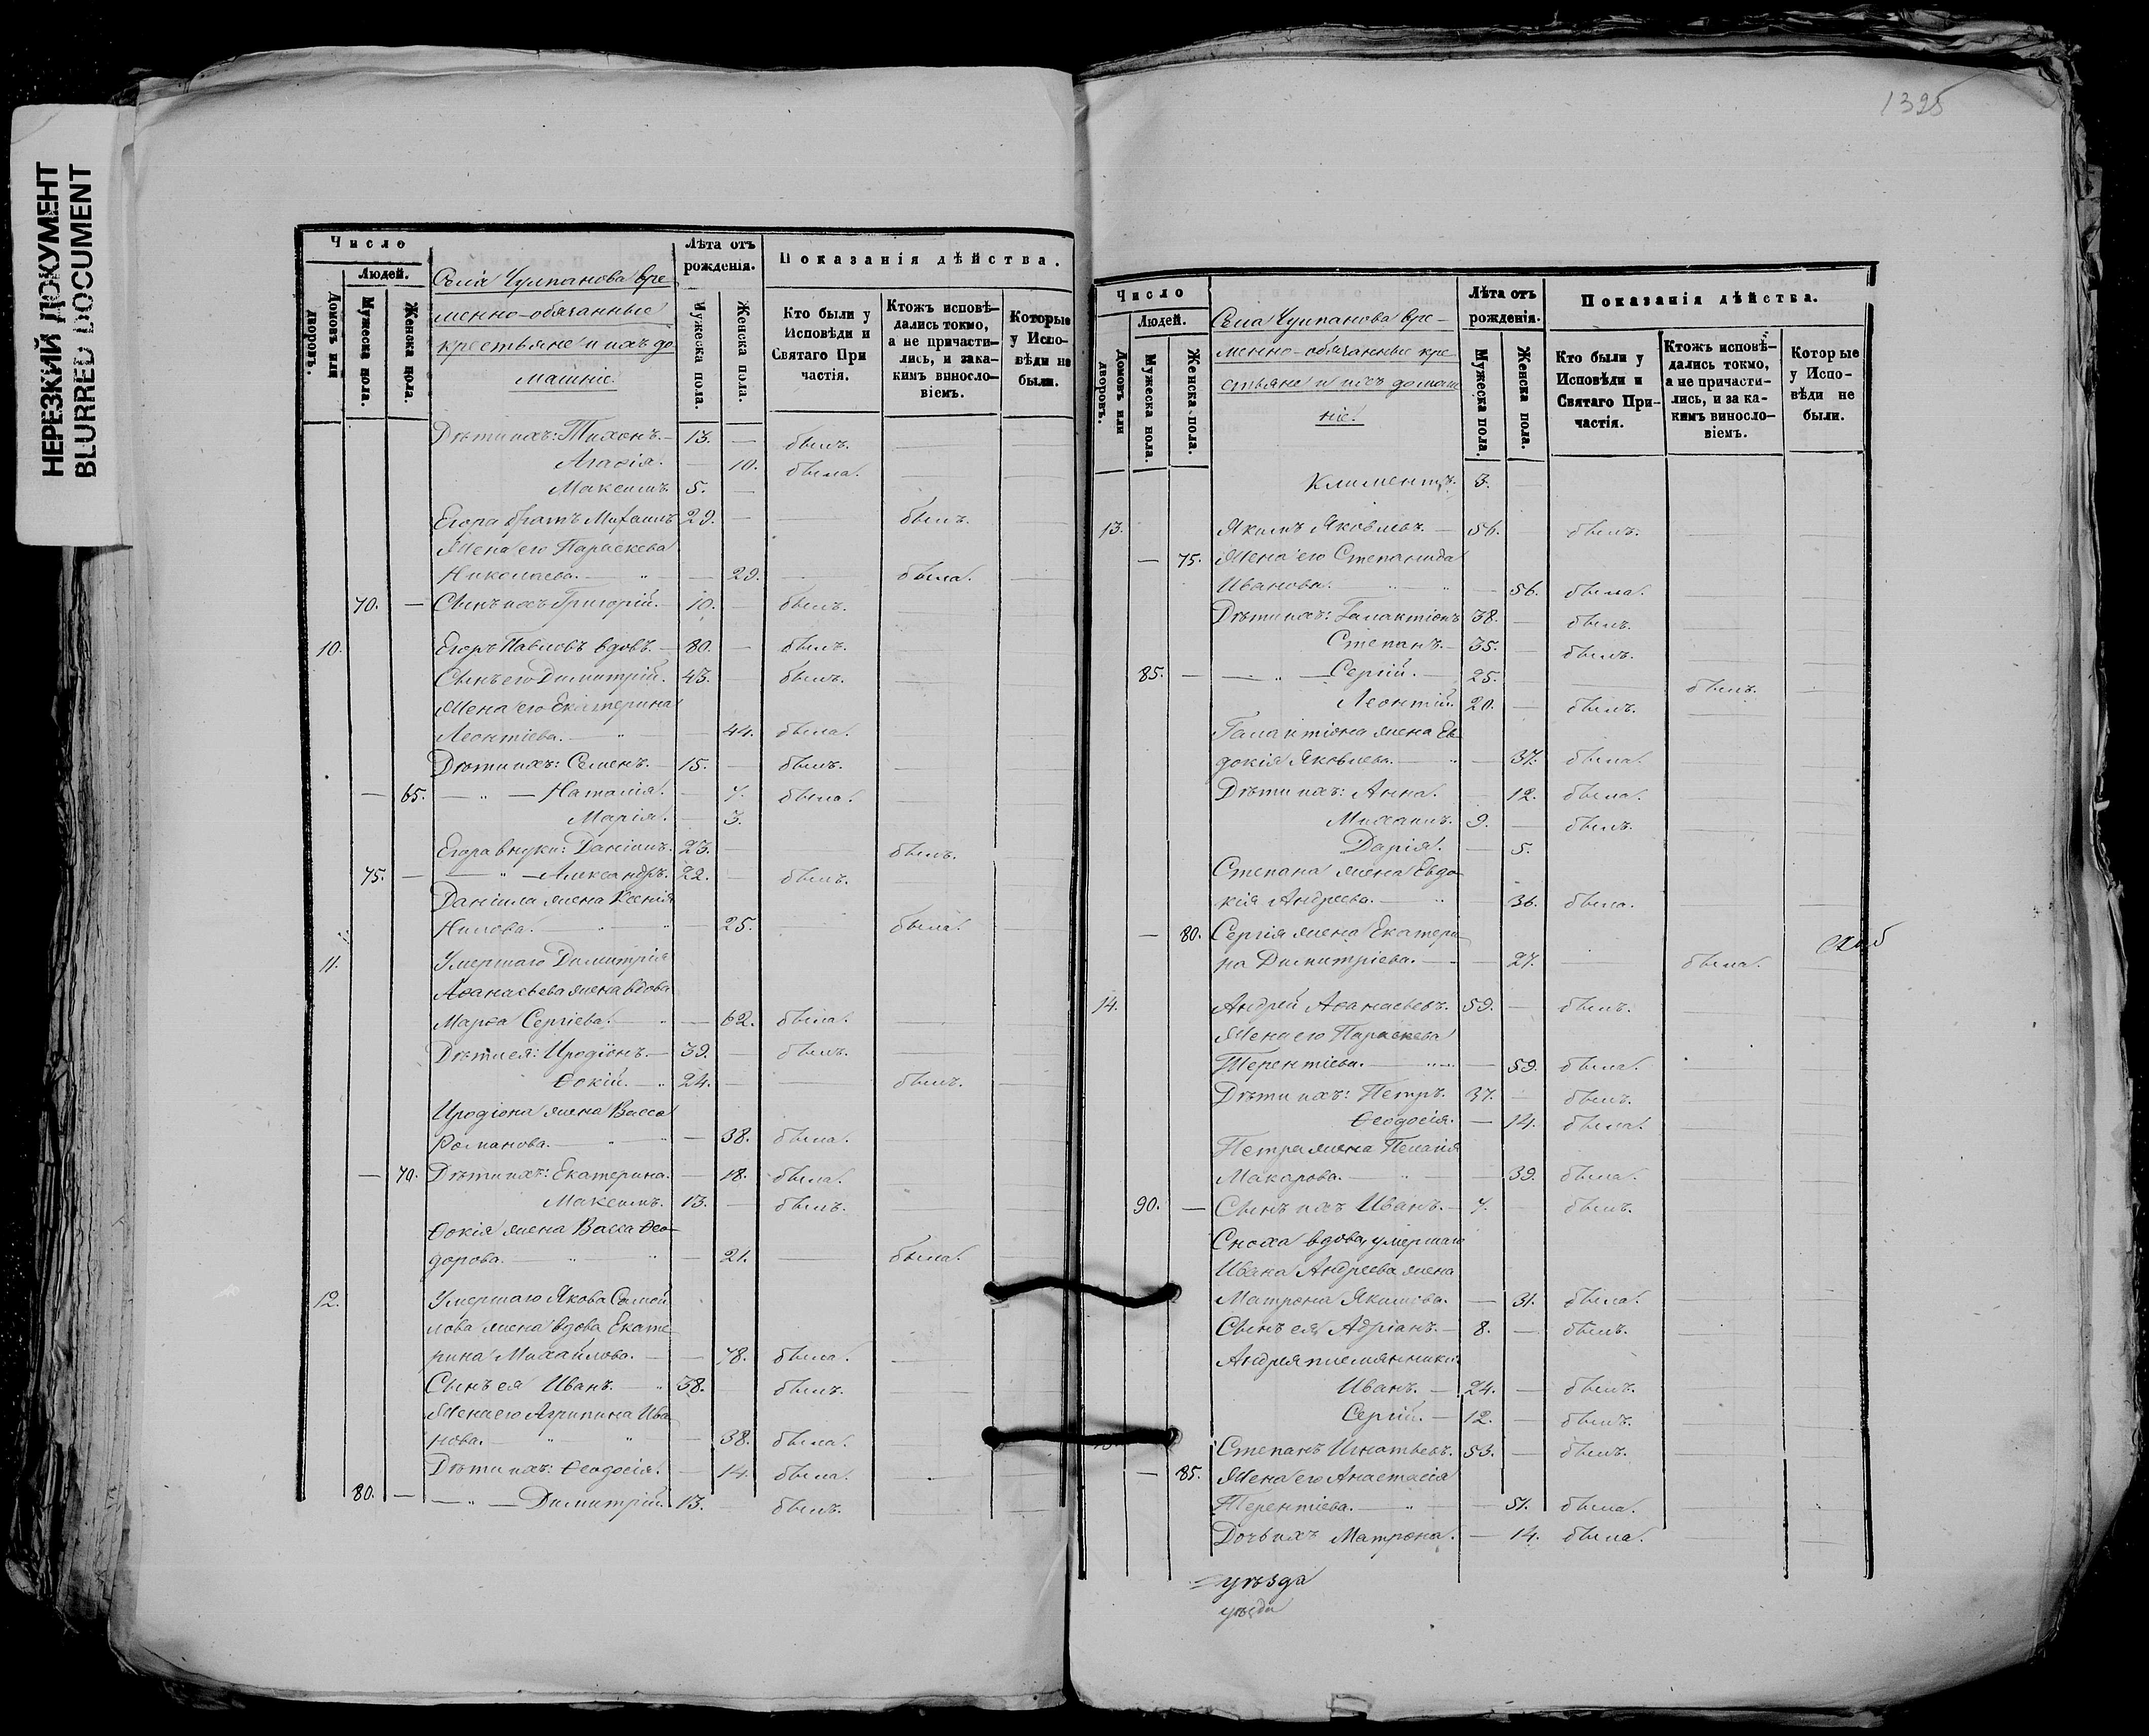 НЕРЕЗКИЙ ДОКУМЕНТ
BLURRED DOCUMENT
Число
Людей.
Домовъ или дворовъ.
Мужеска пола.
Женска пола.
Села Чулпанова вре
менно-обязанные
крестьяне и ихъ до
машніе.
Лѣта отъ рожденія.
Мужеска пола.
Женска пола.
Показанія дѣйства.
Кто были у Исповѣди и Святаго При частія.
Ктожъ исповѣ- дались токмо, а не причасти- лись, и зака- кимъ виносло- віемъ.
Которые у Испо- вѣди не были.
Дѣти ихъ: Тихонъ. — 13. — былъ.
Агафія. — 10. была.
Максимъ 5. —
Егора братъ Михаилъ 29. — — былъ.
Жена его Параскева
Николаева. — 29. — была.
70. — Сынъ ихъ Григорій. 10. — былъ.
10. Егоръ Павловъ вдовъ. — 80. — былъ.
Сынъ его Димитрій. 43. былъ.
Жена его Екатерина
Леонтіева. — 44. была.
Дѣти ихъ: Семенъ. — 15. — былъ.
— 65. — „ — Наталія. — 7. была.
Марія. — 3.
Егора внуки: Даніилъ. 23. — былъ.
75. — — „ — Александръ. 22. — былъ.
Даніила жена Ксенія
Нилова. — 25. — была.
11. Умершаго Димитрія
Аѳанасьева жена вдова
Марѳа Сергіева. — 62. была.
Дѣти ея: Иродіонъ. — 39. — былъ.
Ѳокій. — 24. — былъ.
Иродіона жена Васса
Романова. — 38. была.
— 70. Дѣти ихъ: Екатерина. — 18. была.
Максимъ. 13. — былъ.
Ѳокія жена Васса Ѳео-
дорова. — 21. — была.
12. Умершаго Якова Самой
лова жена вдова Екате
рина Михайлова. — 78. была.
Сынъ ея Иванъ. — 38. былъ.
Жена его Агрипина Ива
нова. — 38. была.
Дѣти ихъ: Ѳеодосія. — 14. была.
80. — — „ — Димитрій. 13. былъ.
1325
Число
Людей.
Домовъ или дворовъ.
Мужеска пола.
Женска пола.
Села Чулпанова вре-
менно-обязанные кре
стьяне и ихъ домаш
ніе.
Лѣта отъ рожденія.
Мужеска пола.
Женска пола.
Показанія дѣйства.
Кто были у Исповѣди и Святаго При- частія.
Ктожъ исповѣ- дались токмо, а не причасти- лись, и за ка- кимъ виносло- віемъ.
Которые у Испо- вѣди не были.
Климентъ. 3. —
13. Якимъ Яковлевъ. — 56. — былъ.
— 75. Жена его Степанида
Иванова. — 56. была.
Дѣти ихъ: Галактіонъ 38. — былъ.
Степанъ. — 35. — былъ.
85. — — „ — Сергій. — 25. — былъ.
Леонтій. 20. — былъ.
Галактіона жена Ев
докія Яковлева. — 37. была.
Дѣти ихъ: Анна. — 12. была.
Михаилъ. 9. — былъ.
Дарія. — 5.
Степана жена Евдо
кія Андреева. — 36. была.
— 80. Сергія жена Екатери
на Димитріева. — 27. — была.
14. Андрей Аѳанасьевъ. 59. — былъ.
Жена его Параскева
Терентіева. — 59. была.
Дѣти ихъ: Петръ. 37. — былъ.
Ѳеодосія. — 14. была.
Петра жена Пелагія
Макарова. — 39. была.
90. — Сынъ ихъ Иванъ. — 7. былъ.
Сноха вдова, умершаго
Ивана Андреева жена
Матрона Якимова. — 31. была.
Сынъ ея Адріанъ. — 8. — былъ.
Андрея племянники:
Иванъ. — 24. — былъ.
Сергій. — 12. — былъ.
Степанъ Игнатьевъ. 53. — былъ.
— 85. Жена его Анастасія
Терентіева. — 51. была.
Дочь ихъ Матрона. — 14. была.
уѣзда